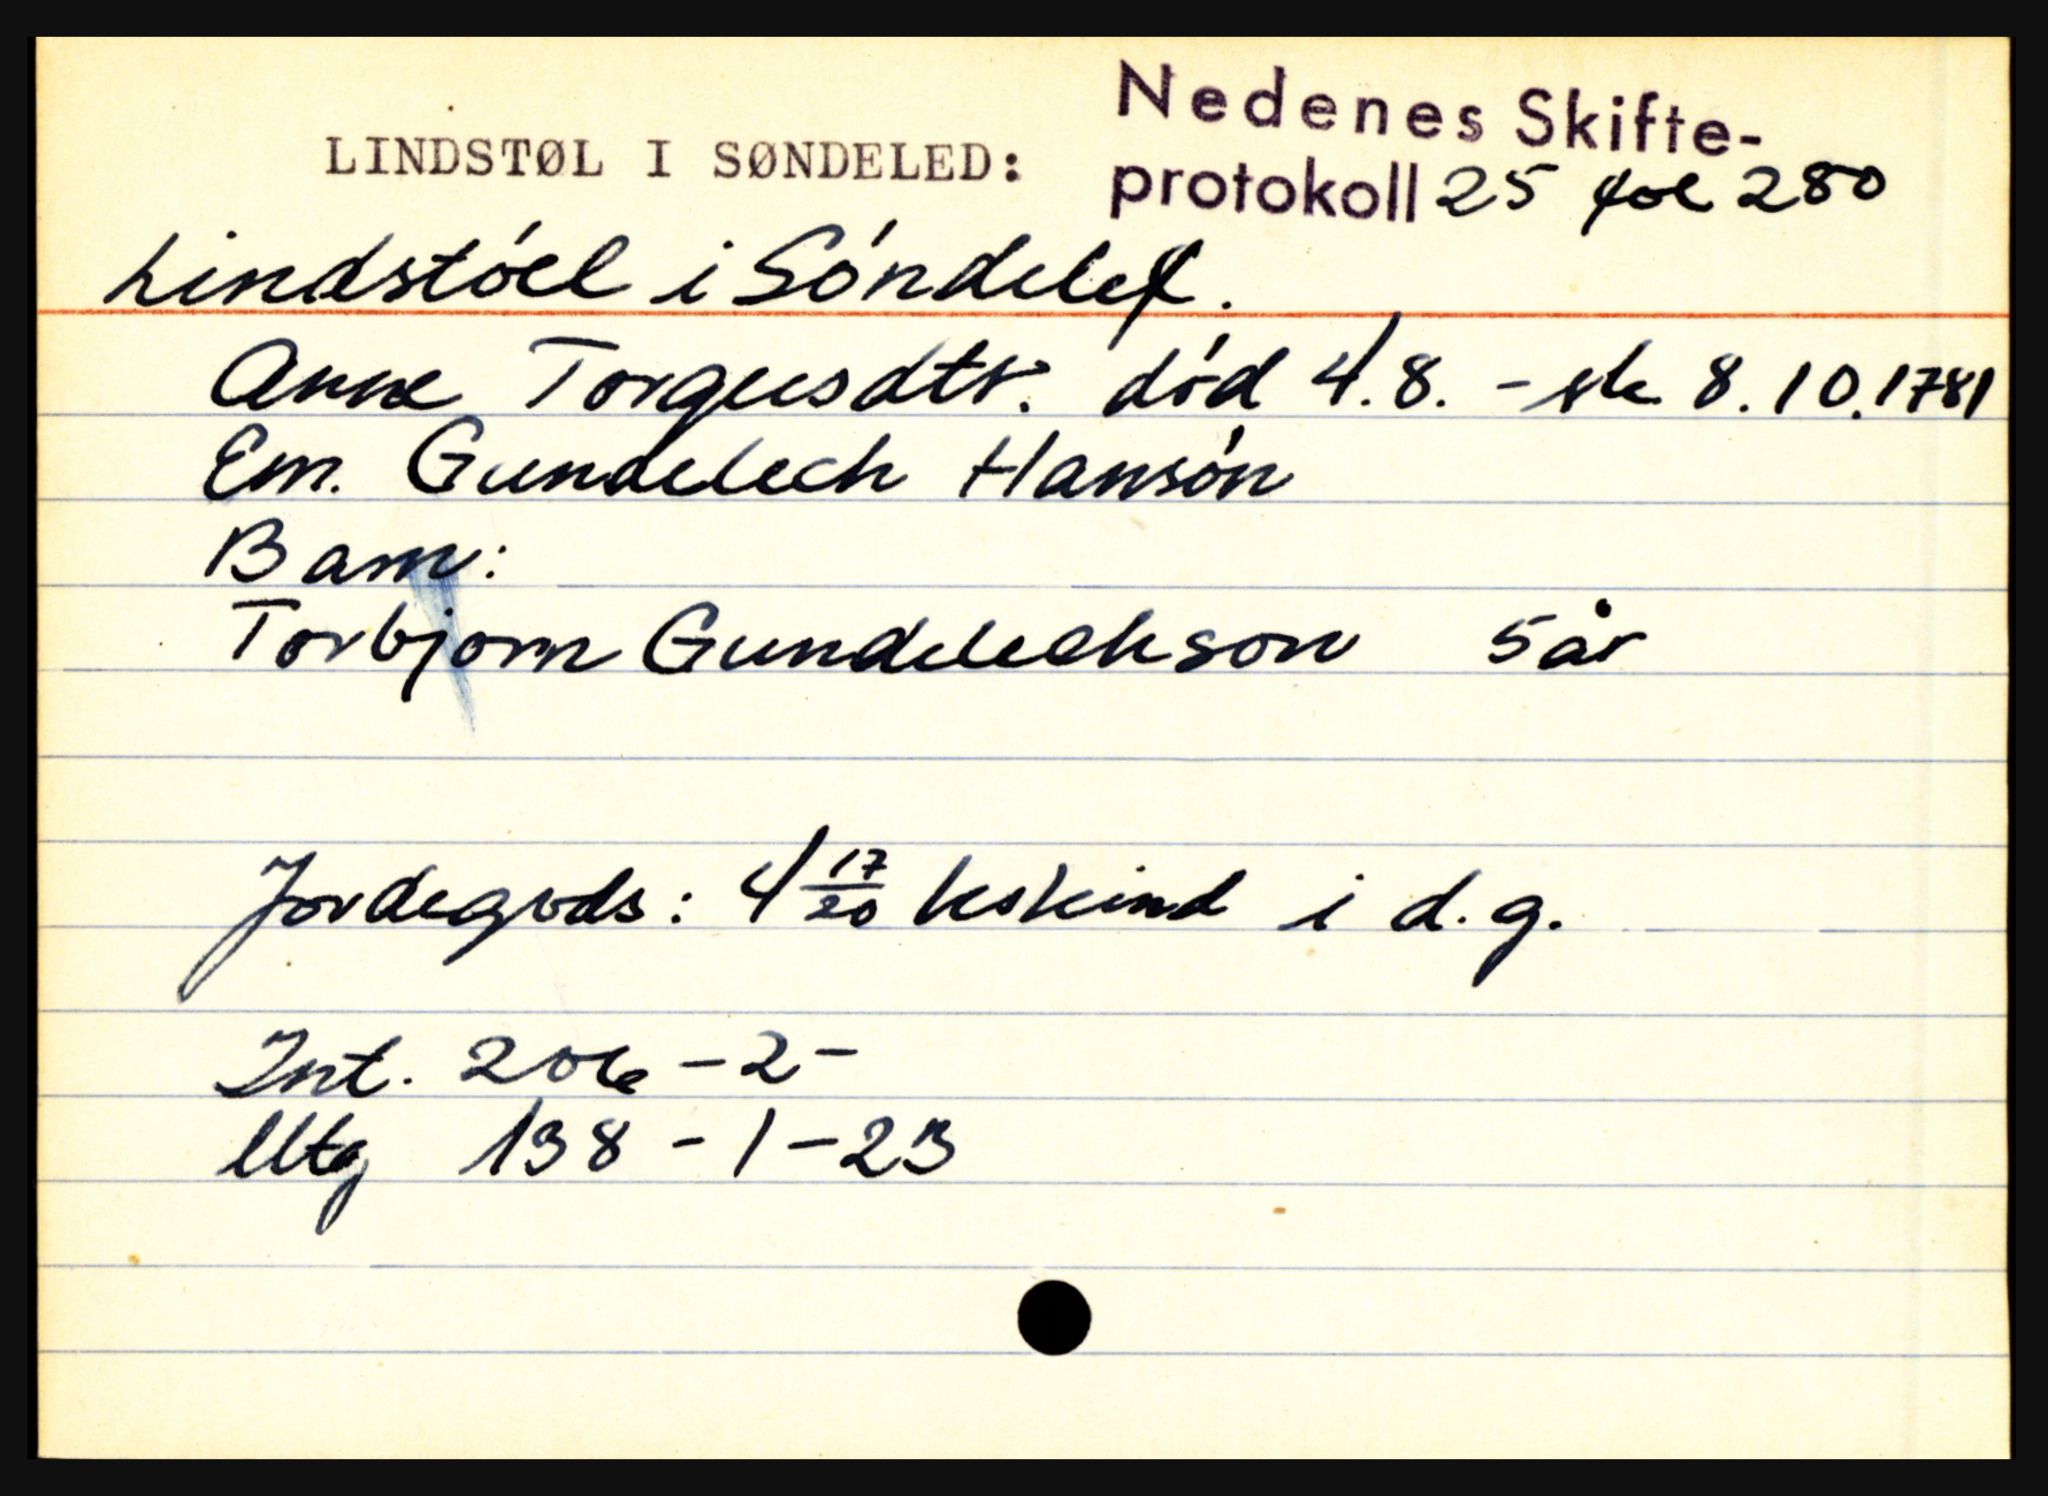 Nedenes Skifte-
LINDSTØL I SØNDELED:
protokoll 25 fol 280
Lindstóel i Sóndelef.
Anne Torgusdtr. død 4.8. - sk 8.10.1781
Em. Gundelech Hansón
Barn:
Torbjorn Gundelechson 5 år
Jordegods: 4 17/20 kskind i d.g.
Int. 206 - 2 -
Utg 138 - 1 - 23